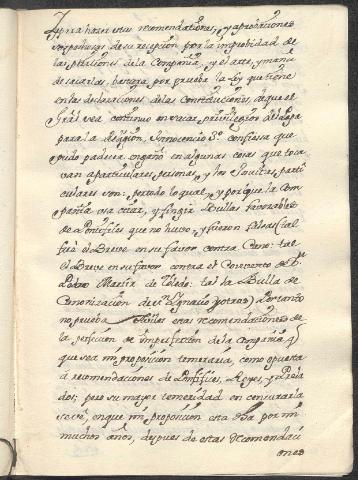 Para hacer estas recomendationes, y aprobationes
de su reception por la improbidad de
las peticiones de la Compañia, y el arte, y maña
de sacarlas, bastara por prueba la Ley que tiene
en las declaraciones de las Constituciones, de que el
Gräl. sea continuo en sacar privilegios del Papa
para la Religion, Innocencio 3º. confiessa que
pudo padecer engaño en algunas cosas que toca
van a particulares personas, y los Jesuitas parti
culares son: por todo lo qual, y porque la Com
pañia usa citar, y fingir Bullas favorables
de Pontifices que no huvo, y fueron falsas (tal
fue el Breve en su favor contra Cano: tal
el Breve en su favor contra el Convento de S.
Pedro Martir de Toledo: tal la Bulla de
Canonizacion de Sn. Ygnacio y otras) Por tanto
no prueba estas recomendationes de
la perfecion de imperfecion de la Compañia
que sea mi proposicion temeraria, como opuesta
a recomendaciones de Pontifices, Reyes, y Prela
dos; pero su mayor temeridad en censurarla
se ve, en que mi proposicion esta dha por mi
muchos años, despues de estas recomendaci
ones